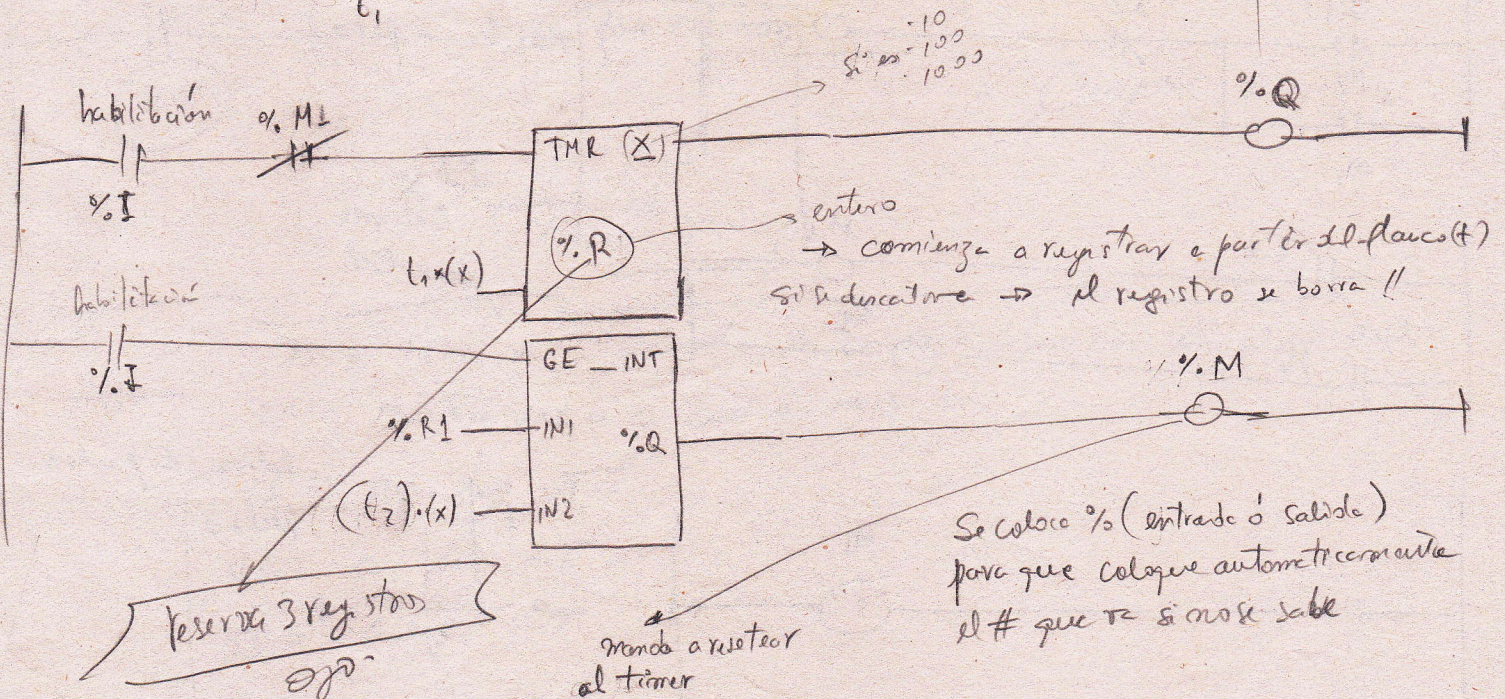 t₁
si es ·10
·100
·1000
%Q
habilitación
%M1
TMR (X)
%I
%R
entero
→ comienza a registrar a partir del flanco (+)
t₁*(x)
→ el registro se borra !!
habilitación
%I
GE_INT
%M
%R1
IN1
%Q
(t₂)·(x)
IN2
Se coloca % (entrada ó salida)
para que coloque automaticamente
el # que va si no se sabe
reserva 3 registros
ojo.
manda a resetear
al timer